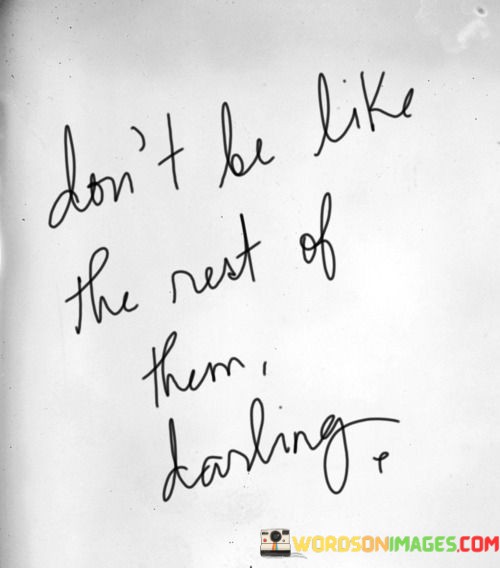 don't be like
the rest of
them,
darling.
WORDSONIMAGES.COM